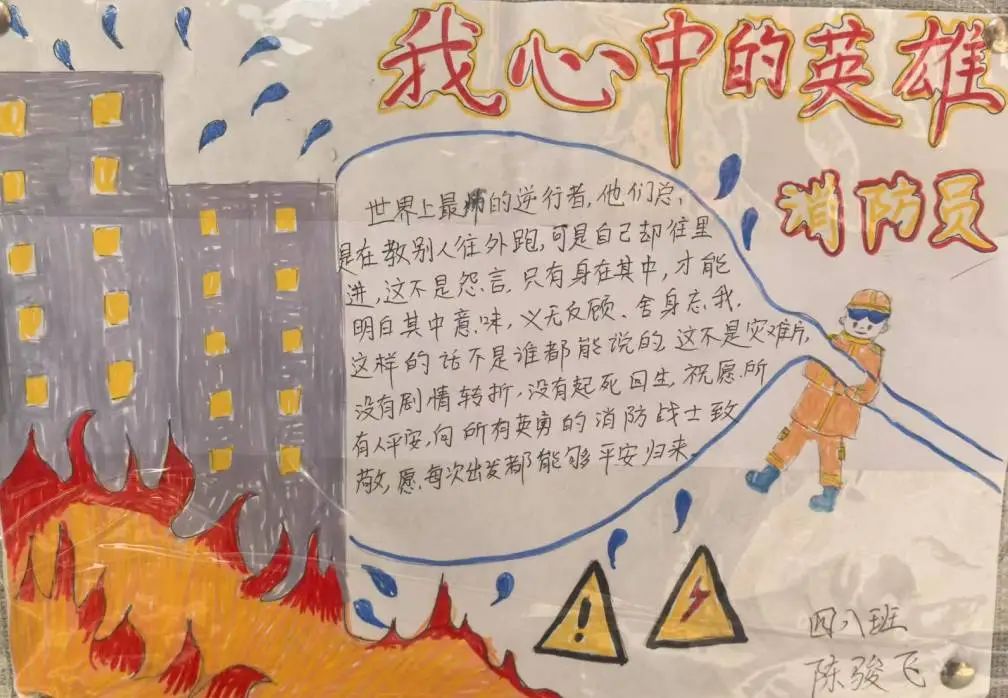 我心中的英雄
消防员
世界上最帅的逆行者,他们总
是在教别人往外跑,可是自己却往里
进,这不是怨言,只有身在其中,才能
明白其中意味,义无反顾、舍身忘我,
这样的话不是谁都能说的,这不是灾难片,
没有剧情转折,没有起死回生,祝愿所
有人平安,向所有英勇的消防战士致
敬,愿每次出发都能够平安归来
四八班
陈骏飞